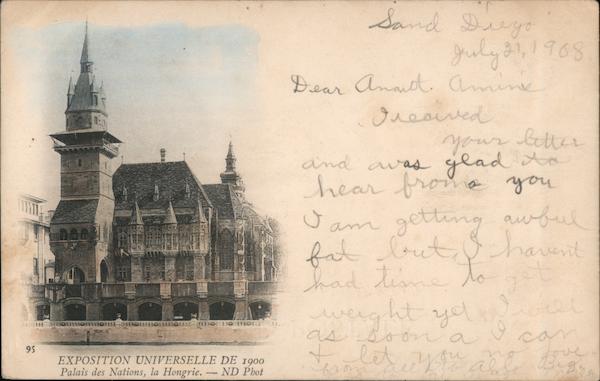 Sand Diego
July 21, 1908
Dear Anunt. Amine
I received
your letter
and awas glad to
hear from you
I am getting awful
fat but I havent
had time to get
weight yet I will
as soon a I can
+ let you no love
from all to all
95
EXPOSITION UNIVERSELLE DE 1900
Palais des Nations, la Hongrie. — ND Phot